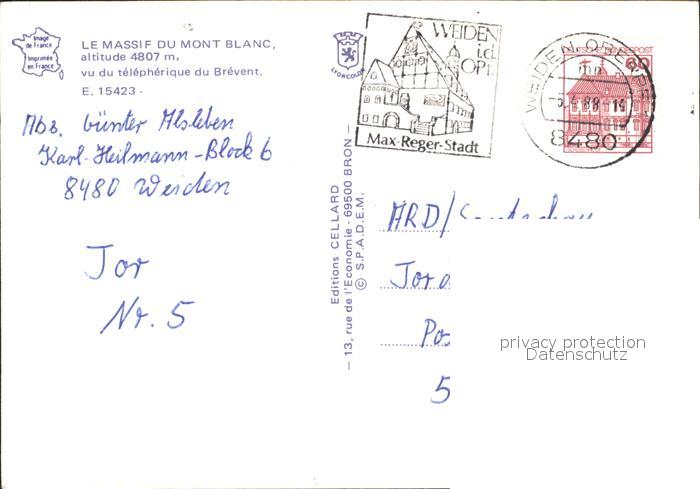 Image
de France
Imprimée
en France
LE MASSIF DU MONT BLANC,
altitude 4807 m,
vu du téléphérique du Brévent.
E. 15423 -
Abs. Günter Alsleben
Karl-Heilmann-Block 6
8480 Weiden
Tor
Nr. 5
LYONCOLOR
Editions CELLARD
— 13, rue de l'Economie - 69500 BRON —
© S.P.A.D.E.M.
WEIDEN
i.d.
OPf.
Max-Reger-Stadt
WEIDEN, OBERPF
8480
DEUTSCHE BUNDESPOST
60
ARD/Sportschau
Tor
Pos
5
privacy protection
Datenschutz